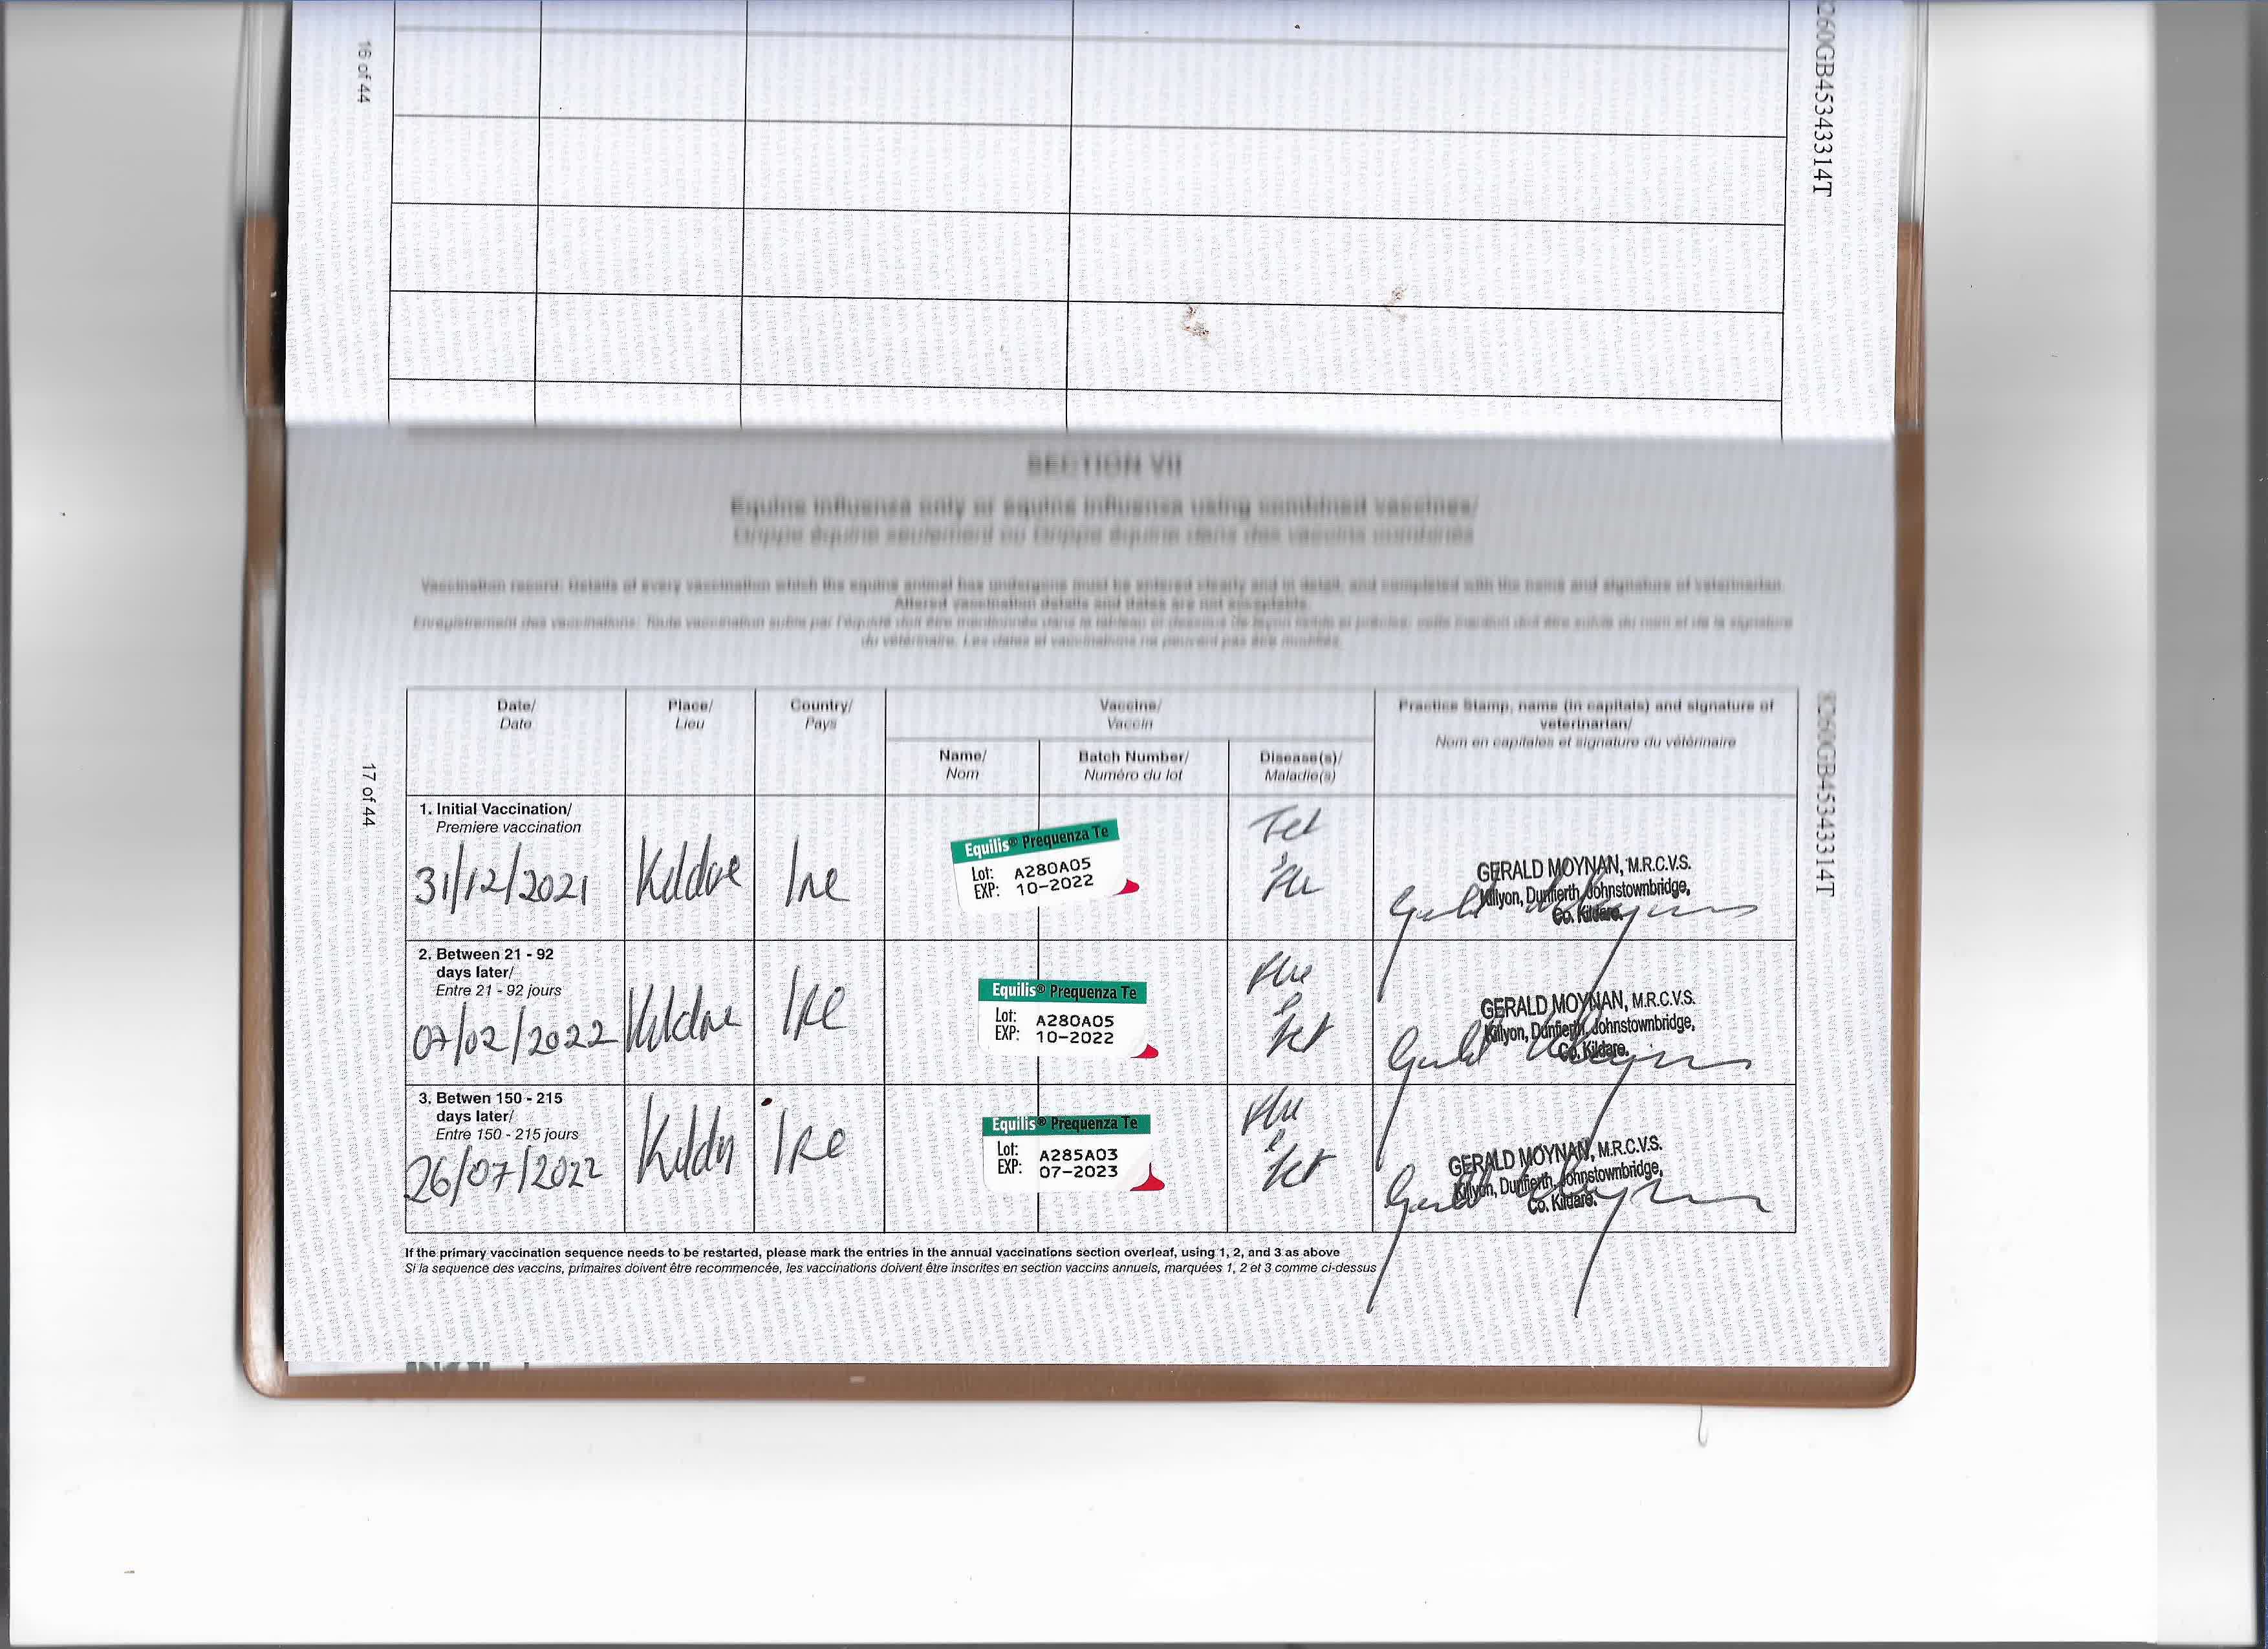 16 of 44
260GB45343314T
SECTION VII
Equine influenza only or equine influenza using combined vaccines/
Grippe équine seulement ou Grippe équine dans des vaccins combinés
Vaccination record: Details of every vaccination which the equine animal has undergone must be entered clearly and in detail, and completed with the name and signature of veterinarian.
Altered vaccination details and dates are not acceptable.
Enregistrement des vaccinations: Toute vaccination subie par l'équidé doit être mentionnée dans le tableau ci dessous de façon lisible et précise; cette mention doit être suivie du nom et de la signature
du vétérinaire. Les dates et vaccinations ne peuvent pas être modifiés.
8260GB45343314T
17 of 44
Date/
Date
Place/
Lieu
Country/
Pays
Vaccine/
Vaccin
Name/
Nom
Batch Number/
Numéro du lot
Disease(s)/
Maladie(s)
Practice Stamp, name (in capitals) and signature of
veterinarian/
Nom en capitales et signature du vétérinaire
1. Initial Vaccination/
Premiere vaccination
31/12/2021
Kildare
Ire
Equilis® Prequenza Te
Lot: A280A05
EXP: 10-2022
Tet
& Flu
GERALD MOYNAN, M.R.C.V.S.
Killyon, Dunfierth, Johnstownbridge,
Co. Kildare.
2. Between 21 - 92
days later/
Entre 21 - 92 jours
07/02/2022
Kildare
Ire
Equilis® Prequenza Te
Lot: A280A05
EXP: 10-2022
Flu
& Tet
GERALD MOYNAN, M.R.C.V.S.
Killyon, Dunfierth, Johnstownbridge,
Co. Kildare.
3. Betwen 150 - 215
days later/
Entre 150 - 215 jours
26/07/2022
Kildare
Ire
Equilis® Prequenza Te
Lot: A285A03
EXP: 07-2023
Flu
& Tet
GERALD MOYNAN, M.R.C.V.S.
Killyon, Dunfierth, Johnstownbridge,
Co. Kildare.
If the primary vaccination sequence needs to be restarted, please mark the entries in the annual vaccinations section overleaf, using 1, 2, and 3 as above
Si la sequence des vaccins, primaires doivent être recommencée, les vaccinations doivent être inscrites en section vaccins annuels, marquées 1, 2 et 3 comme ci-dessus